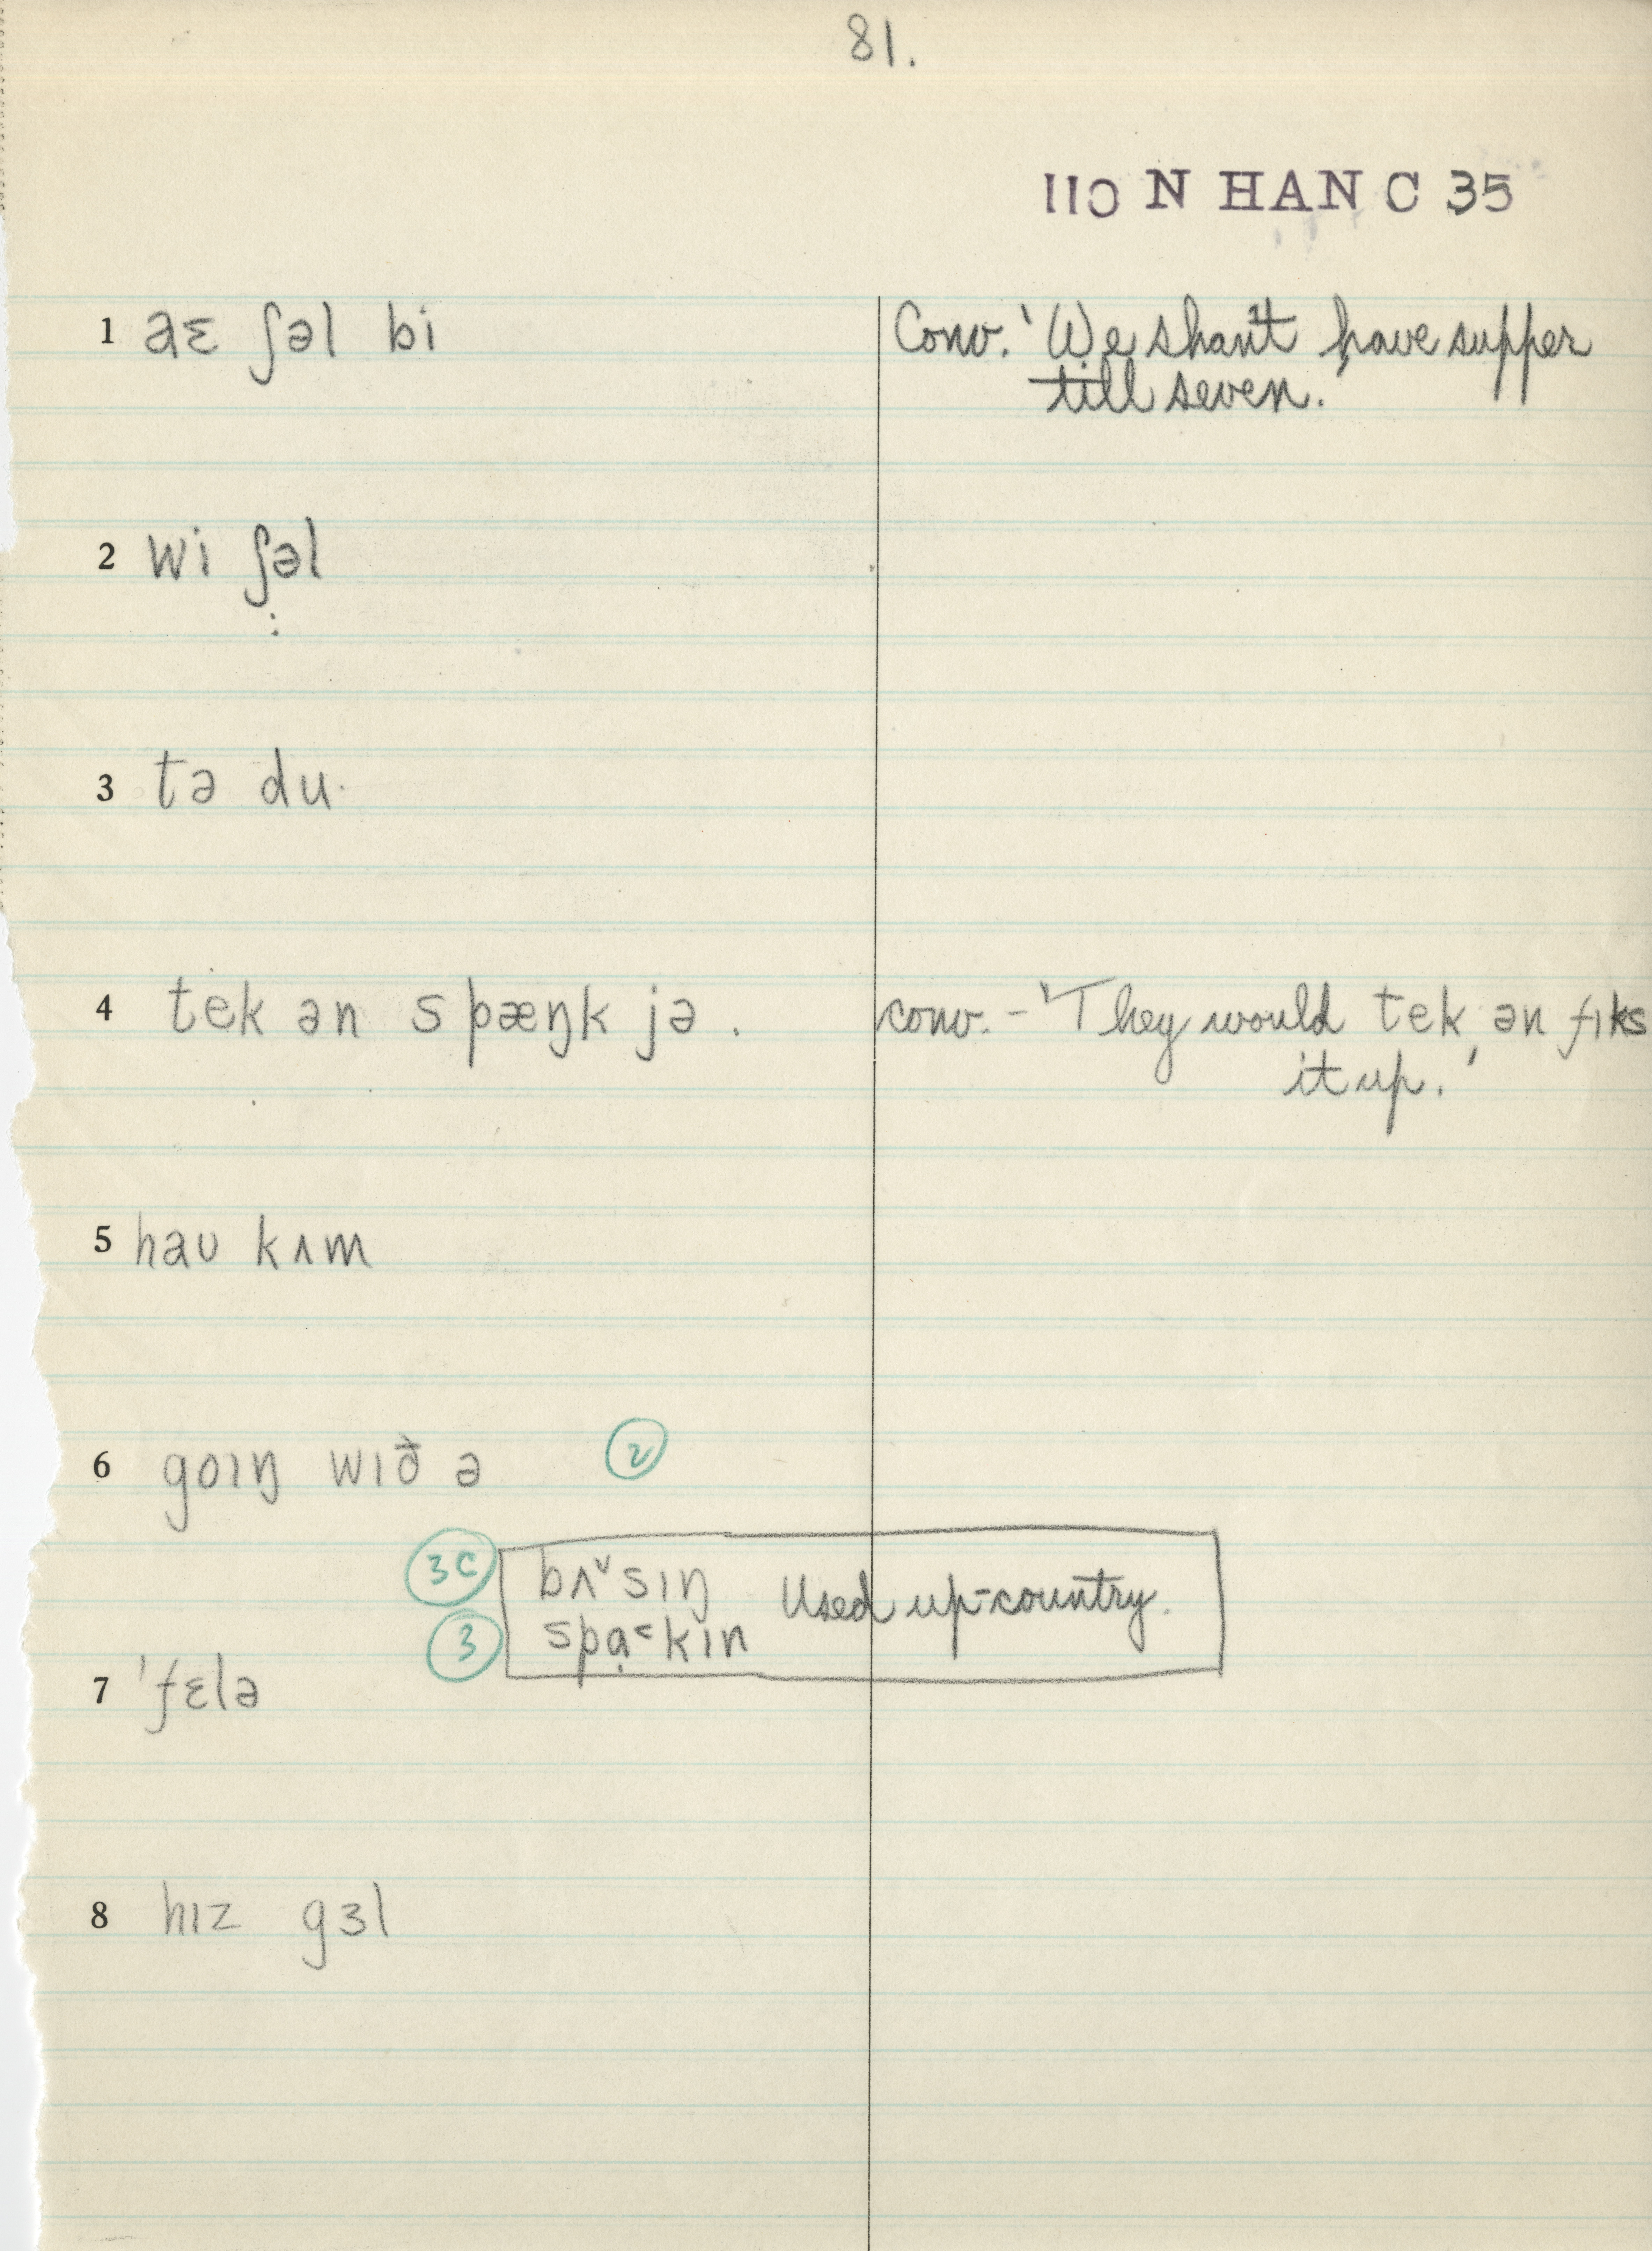 81.
IIO N HAN C 35
1 aɛ ʃəl bi
Conv. 'We shan't have supper
till seven.'
2 wi ʃəl
:
3 tə du·
4 tek ən spæŋk jə.
conv. - 'They would tek ən fɪks
it up.'
5 haʊ kʌm
6 goɪŋ wɪð ə ②
3C bʌ˅sɪŋ Used up-country.
3 spɑ̣˂kɪn
7 'fɛlə
8 hɪz gɜl